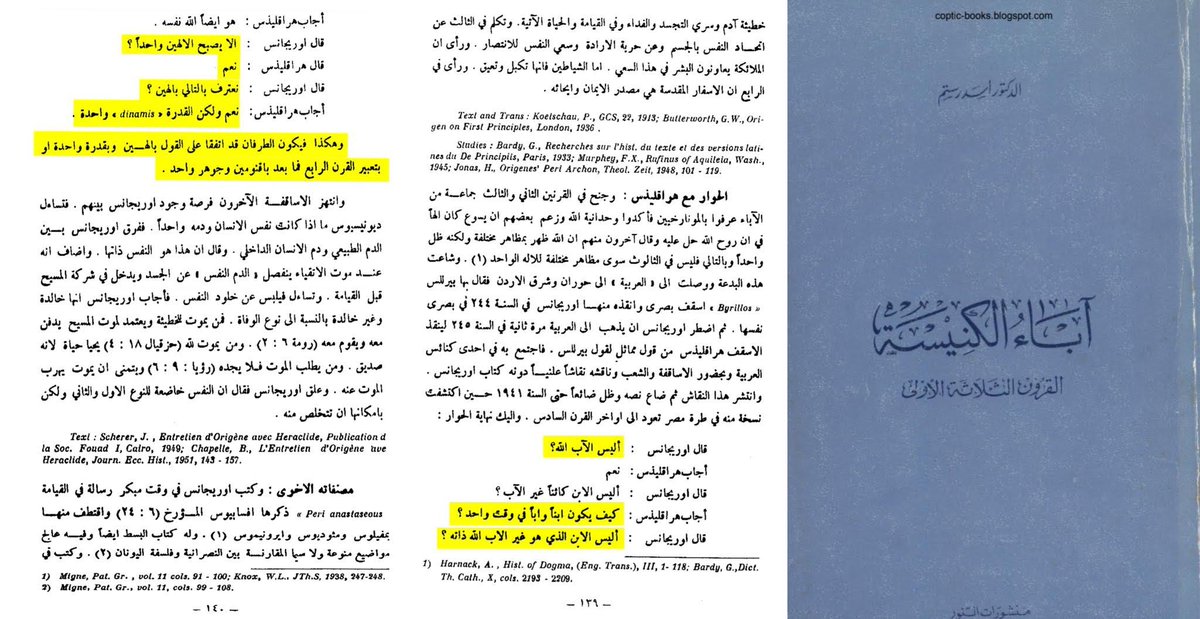 coptic-books.blogspot.com
الدكتور أسد رستم
آباء الكنيسة
القرون الثلاثة الأولى
منشورات النور
خطيئة آدم وسري التجسد والفداء وفي القيامة والحياة الآتية . وتكلم في الثالث عن
اتحاد النفس بالجسم وعن حرية الارادة وسعي النفس للانتصار . ورأى ان
الملائكة يعاونون البشر في هذا السعي . اما الشياطين فانها تكبل وتعيق . ورأى في
الرابع ان الاسفار المقدسة هي مصدر الايمان وايحائه .
Text and Trans : Koetschau, P., GCS, 22, 1913; Butterworth, G.W., Ori-
gen on First Principles, London, 1936 .
Studies : Bardy, G., Recherches sur l'hist. du texte et des versions lati-
nes du De Principiis, Paris, 1933; Murphey, F.X., Rufinus of Aquileia, Wash.,
1945; Jonas, H., Origenes' Peri Archon, Theol. Zeit, 1948, 101 - 119.
الحوار مع هراقليذس : وجنح في القرنين الثاني والثالث جماعة من
الآباء عرفوا بالمونارخيين فأكدوا وحدانية الله وزعم بعضهم ان يسوع كان الهاً
في ان روح الله حل عليه وقال آخرون منهم ان الله ظهر بمظاهر مختلفة ولكنه ظل
واحداً وبالتالي فليس في الثالوث سوى مظاهر مختلفة للاله الواحد (١) . وشاعت
هذه البدعة ووصلت الى « العربية » الى حوران وشرق الاردن فقال بها بيرللس
« Byrillos » اسقف بصرى وانقذه منها اوريجانس في السنة ٢٤٤ في بصرى
نفسها . ثم اضطر اوريجانس ان يذهب الى العربية مرة ثانية في السنة ٢٤٥ لينقذ
الاسقف هراقليذس من قول مماثل لقول بيرللس . فاجتمع به في احدى كنائس
العربية وبحضور الاساقفة والشعب وناقشه نقاشاً علنياً دونه كتاب اوريجانس .
وانتشر هذا النقاش ثم ضاع نصه وظل ضائعاً حتى السنة ١٩٤١ حين اكتشفت
نسخة منه في طرة مصر تعود الى اواخر القرن السادس . واليك نهاية الحوار :
قال اوريجانس : أليس الآب الله؟
أجاب هراقليذس: نعم
قال اوريجانس : أليس الابن كائناً غير الآب ؟
أجاب هراقليذس: كيف يكون ابناً واباً في وقت واحد ؟
قال اوريجانس : أليس الابن الذي هو غير الاب الله ذاته ؟
1) Harnack, A. , Hist. of Dogma, (Eng. Trans.), III, 1- 118; Bardy, G.,Dict.
Th. Cath., X, cols. 2193 - 2209.
— ١٣٩ —
أجاب هراقليذس : هو ايضاً الله نفسه .
قال اوريجانس : الا يصبح الالهين واحداً ؟
قال هراقليذس : نعم
قال اوريجانس : نعترف بالتالي بالهين ؟
أجاب هراقليذس: نعم ولكن القدرة « dinamis » واحدة .
وهكذا فيكون الطرفان قد اتفقا على القول بالهين وبقدرة واحدة او
بتعبير القرن الرابع فما بعد باقنومين وجوهر واحد .
وانتهز الاساقفة الآخرون فرصة وجود اوريجانس بينهم . فتساءل
ديونيسيوس ما اذا كانت نفس الانسان ودمه واحداً . ففرق اوريجانس بين
الدم الطبيعي ودم الانسان الداخلي . وقال ان هذا هو النفس ذاتها . واضاف انه
عند موت الاتقياء ينفصل « الدم النفس » عن الجسد ويدخل في شركة المسيح
قبل القيامة . وتساءل فيلبس عن خلود النفس . فأجاب اوريجانس انها خالدة
وغير خالدة بالنسبة الى نوع الوفاة . فمن يموت للخطيئة ويعتمد لموت المسيح يدفن
معه ويقوم معه (رومة ٦ : ٢) . ومن يموت لله (حزقيال ١٨ : ٤) يحيا حياة لانه
صديق . ومن يطلب الموت فلا يجده (رؤيا : ٩ : ٦) ويتمنى ان يموت يهرب
الموت عنه . وعلق اوريجانس فقال ان النفس خاضعة للنوع الاول والثاني ولكن
بامكانها ان تتخلص منه .
Text : Scherer, J. , Entretien d'Origène avec Heraclide, Publication d
la Soc. Fouad I, Cairo, 1949; Chapelle, B., L'Entretien d'Origène ave
Heraclide, Journ. Ecc. Hist., 1951, 143 - 157.
مصنفاته الاخرى : وكتب اوريجانس في وقت مبكر رسالة في القيامة
« Peri anastaseous ذكرها افسابيوس المؤرخ (٦ : ٢٤) واقتطف منها
بمفيلوس ومثوديوس وايرونيموس (١) . وله كتاب البسط ايضاً وفيه عالج
مواضيع منوعة ولا سيما المقارنة بين النصرانية وفلسفة اليونان (٢) . وكتب في
1) Migne, Pat. Gr. , vol. 11 cols. 91 - 100; Knox, W.L.. JTh.S, 1938, 247-248.
2) Migne, Pat. Gr., vol. 11, cols. 99 - 108.
— ١٤٠ —